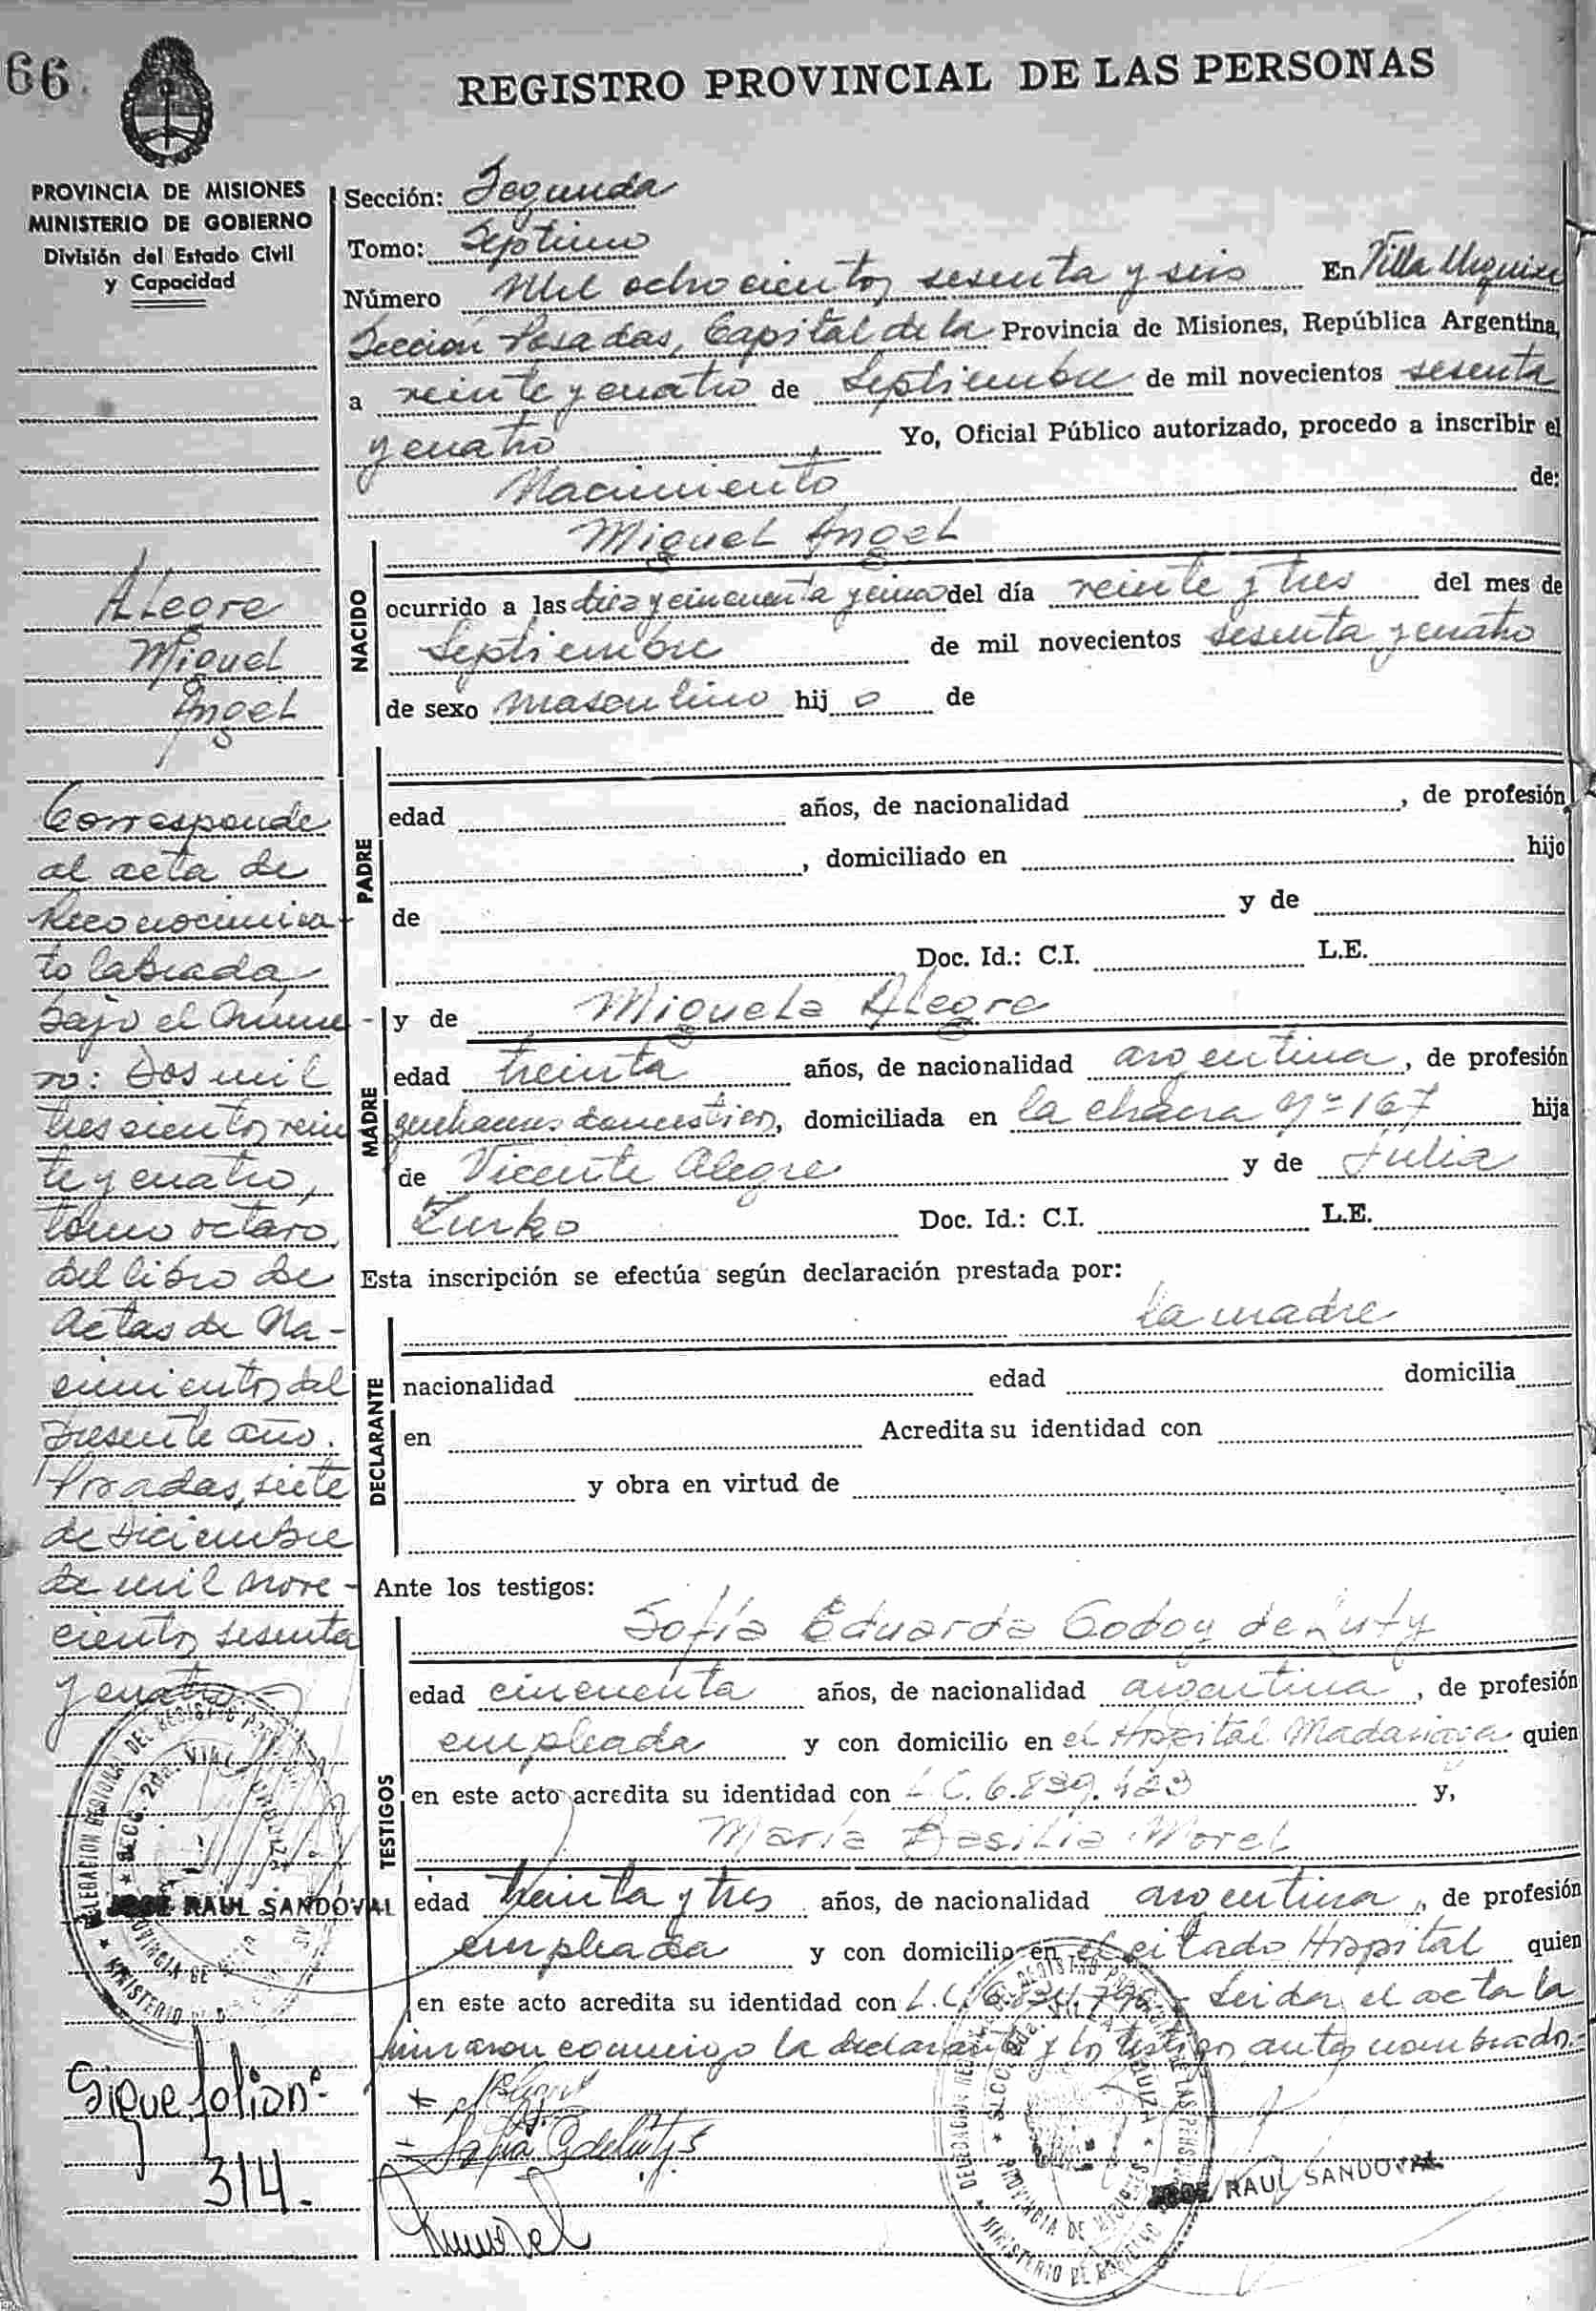 66.
REGISTRO PROVINCIAL DE LAS PERSONAS
PROVINCIA DE MISIONES
MINISTERIO DE GOBIERNO
División del Estado Civil
y Capacidad
Sección: Segunda
Tomo: Septimo
Número Mil ochocientos sesenta y seis En Villa Urquiza
Sección Posadas, Capital de la Provincia de Misiones, República Argentina,
a veinte y cuatro de Septiembre de mil novecientos sesenta
y cuatro Yo, Oficial Público autorizado, procedo a inscribir el
Nacimiento de:
NACIDO
Miguel Angel
ocurrido a las diez y cincuenta y cinco del día veinte y tres del mes de
Septiembre de mil novecientos sesenta y cuatro
de sexo masculino hij o de
PADRE
edad años, de nacionalidad , de profesión
, domiciliado en hijo
de y de
Doc. Id.: C.I. L.E.
MADRE
y de Miguela Alegre
edad treinta años, de nacionalidad argentina, de profesión
quehaceres domesticos, domiciliada en la chacra Nº 167 hija
de Vicente Alegre y de Julia
Zurko Doc. Id.: C.I. L.E.
Esta inscripción se efectúa según declaración prestada por:
la madre
DECLARANTE
nacionalidad edad domicilia
en Acredita su identidad con
y obra en virtud de
Ante los testigos:
TESTIGOS
Sofía Eduarda Godoy de Luty
edad cincuenta años, de nacionalidad argentina, de profesión
empleada y con domicilio en el Hospital Madariaga quien
en este acto acredita su identidad con L.C. 6.839.423 y,
María Basilia Morel
edad treinta y tres años, de nacionalidad argentina, de profesión
empleada y con domicilio en el citado Hospital quien
en este acto acredita su identidad con L.C. Leida el acta la
firmaron conmigo la declarante y los testigos antes nombrados.-
JOSE RAUL SANDOVAL
Alegre
Miguel
Angel
Corresponde
al acta de
Reconocimien-
to labrada
bajo el núme-
ro: Dos mil
trescientos vein
te y cuatro,
tomo octavo,
del libro de
Actas de Na-
cimientos del
presente año.
Posadas, siete
de Diciembre
de mil nove-
cientos sesenta
y cuatro.
JOSE RAUL SANDOVAL
Sigue folio nº
314.-